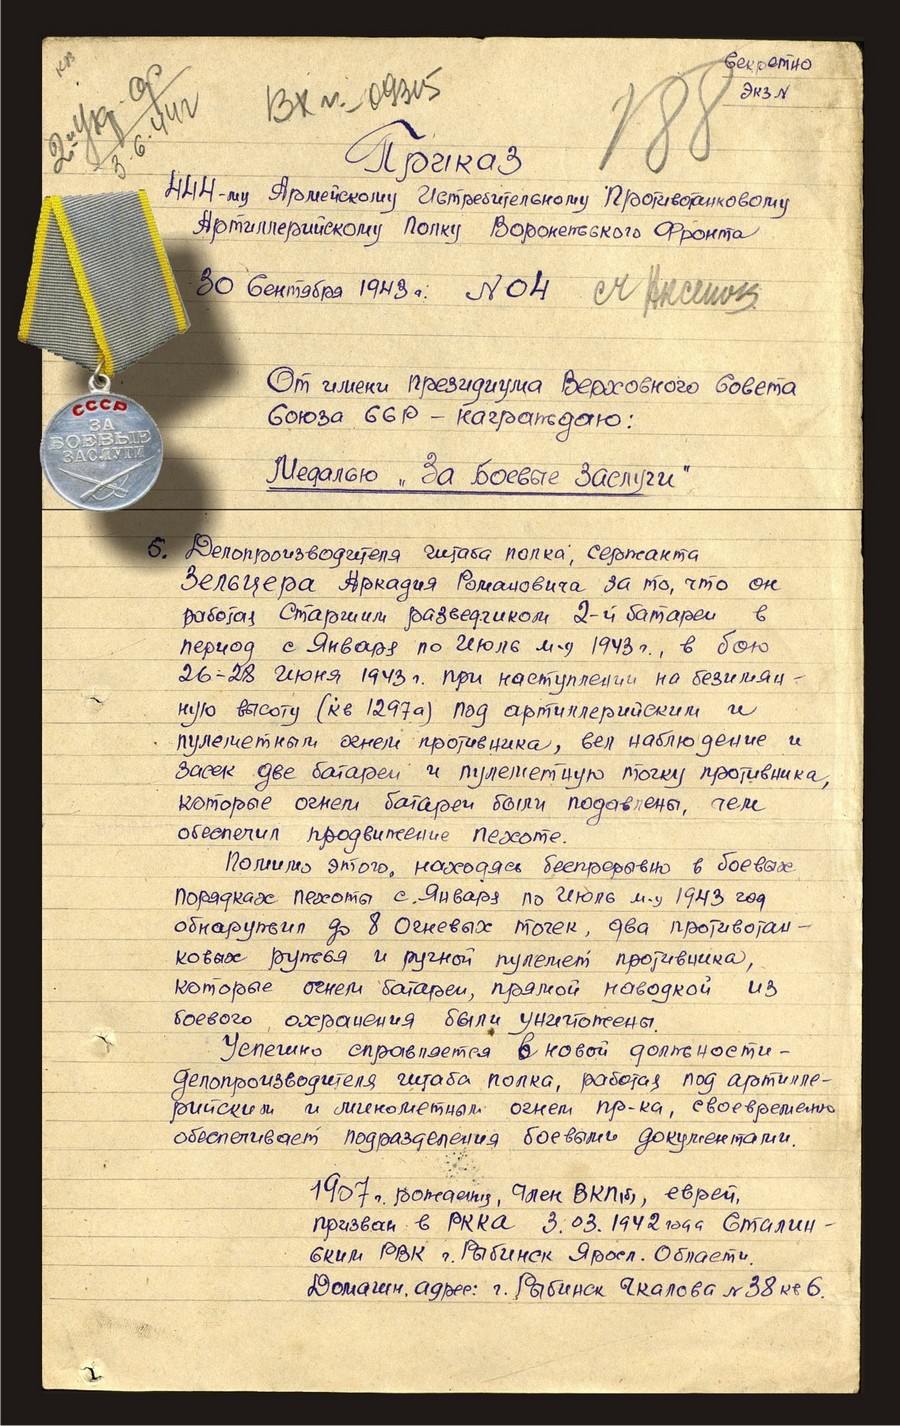 Секретно
Экз №
2-й Укр. Ф
3-6-44г
Вх №-09305
188
Приказ
444-му Армейскому Истребительному Противотанковому
Артиллерийскому Полку Воронежского Фронта
30 Сентября 1943 г. № 04
От имени президиума Верховного Совета
Союза ССР – награждаю:
Медалью „За Боевые Заслуги"
СССР
ЗА
БОЕВЫЕ
ЗАСЛУГИ
5. Делопроизводителя штаба полка, сержанта
Зельцера Аркадия Романовича за то, что он
работая Старшим разведчиком 2-й батареи в
период с Января по Июль м-ц 1943 г., в бою
26-28 Июня 1943 г. при наступлении на безимян-
ную высоту (кв 1297а) под артиллерийским и
пулеметным огнем противника, вел наблюдение и
засек две батареи и пулеметную точку противника,
которые огнем батареи были подавлены, чем
обеспечил продвижение пехоте.
Помимо этого, находясь беспрерывно в боевых
порядках пехоты с Января по Июль м-ц 1943 год
обнаружил до 8 Огневых точек, два противотан-
ковых ружья и ручной пулемет противника,
которые огнем батареи, прямой наводкой из
боевого охранения были уничтожены.
Успешно справляется в новой должности-
делопроизводителя штаба полка, работая под артилле-
рийским и минометным огнем пр-ка, своевременно
обеспечивает подразделения боевыми документами.
1907 г. рождения, Член ВКП(б), еврей,
призван в РККА 3.03.1942 года Сталин-
ским РВК г. Рыбинск Яросл. Области.
Домашн. адрес: г. Рыбинск Чкалова № 38 кв 6.